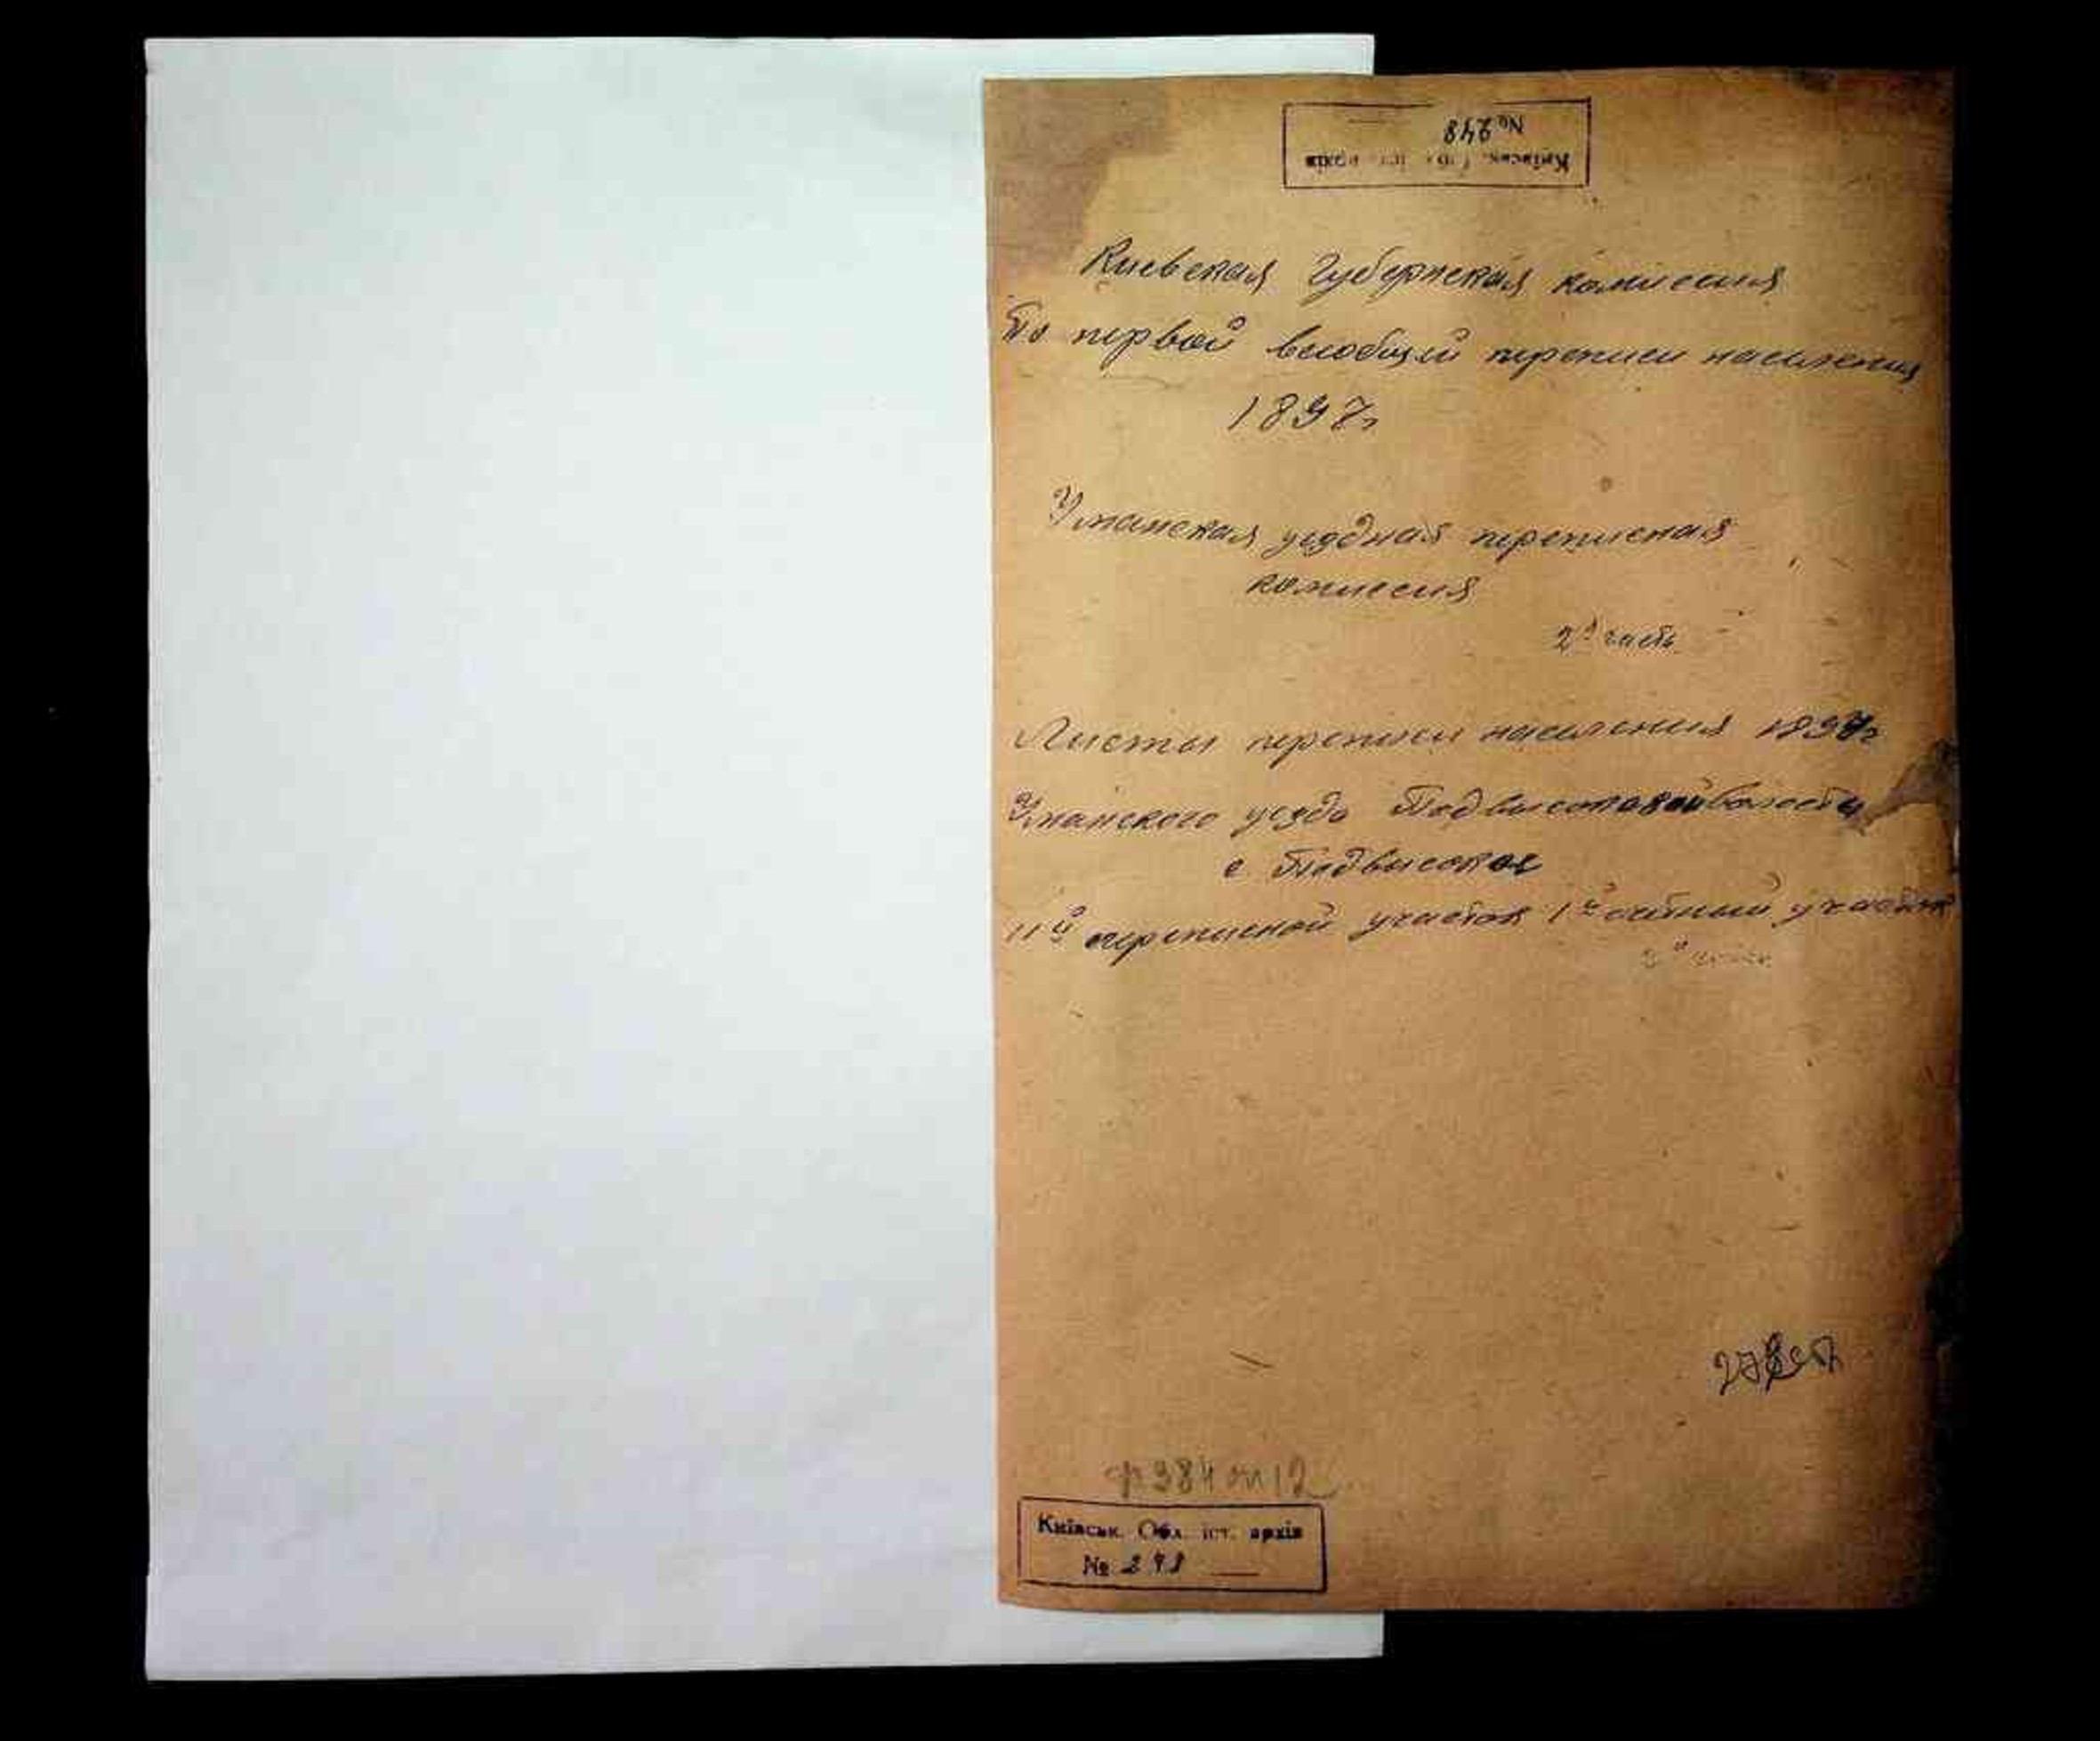 Київськ. Обл. іст. архів
№ 248
Киевская Губернская комиссия
По первой всеобщей переписи населения
1897г
Уманская уездная переписная
комиссия
2я часть
Листы переписи населения 1897г
Уманского уезда Подвысоковой волости
с Подвысокое
11й переписной участок 1й счетный участок
ф 384 оп 12
Київськ. Обл. іст. архів
№ 248